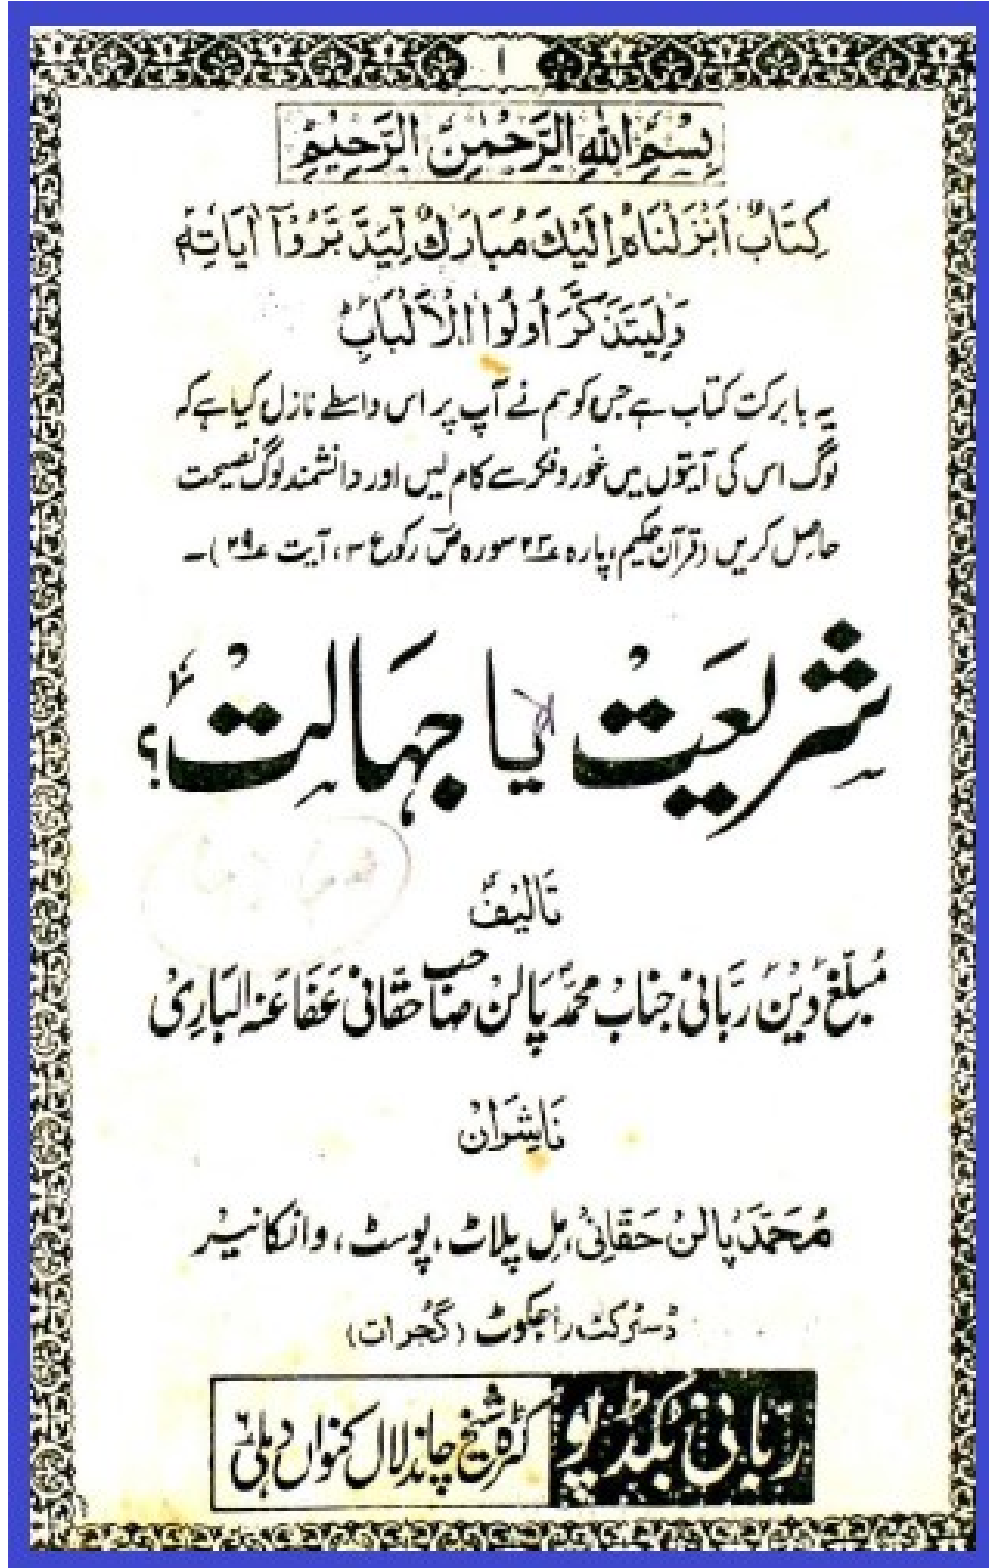 ۱
بِسْمِ اللهِ الرَّحْمٰنِ الرَّحِيْمِ
كِتَابٌ اَنْزَلْنَاهُ اِلَيْكَ مُبَارَكٌ لِّيَدَّبَّرُوْآ اٰيَاتِهٖ
وَلِيَتَذَكَّرَ اُولُوا الْاَلْبَابِ
یہ بابرکت کتاب ہے جس کو ہم نے آپ پر اس واسطے نازل کیا ہے کہ
لوگ اس کی آیتوں میں غور و فکر سے کام لیں اور دانشمند لوگ نصیحت
حاصل کریں (قرآن حکیم، پارہ ۲۳ سورہ صٓ رکوع ۳، آیت ۲۹)۔
شریعت یا جہالت؟
تالیف
مبلّغ دین ربّانی جناب محمّد پالن صاحب حقانی عفا عنہ الباری
ناشران
محمّد پالن حقانی، مل پلاٹ، پوسٹ، وانکانیر
ڈسٹرکٹ راجکوٹ (گجرات)
ربّانی بکڈپو کٹرہ شیخ چاند لال کنواں دہلی ۶